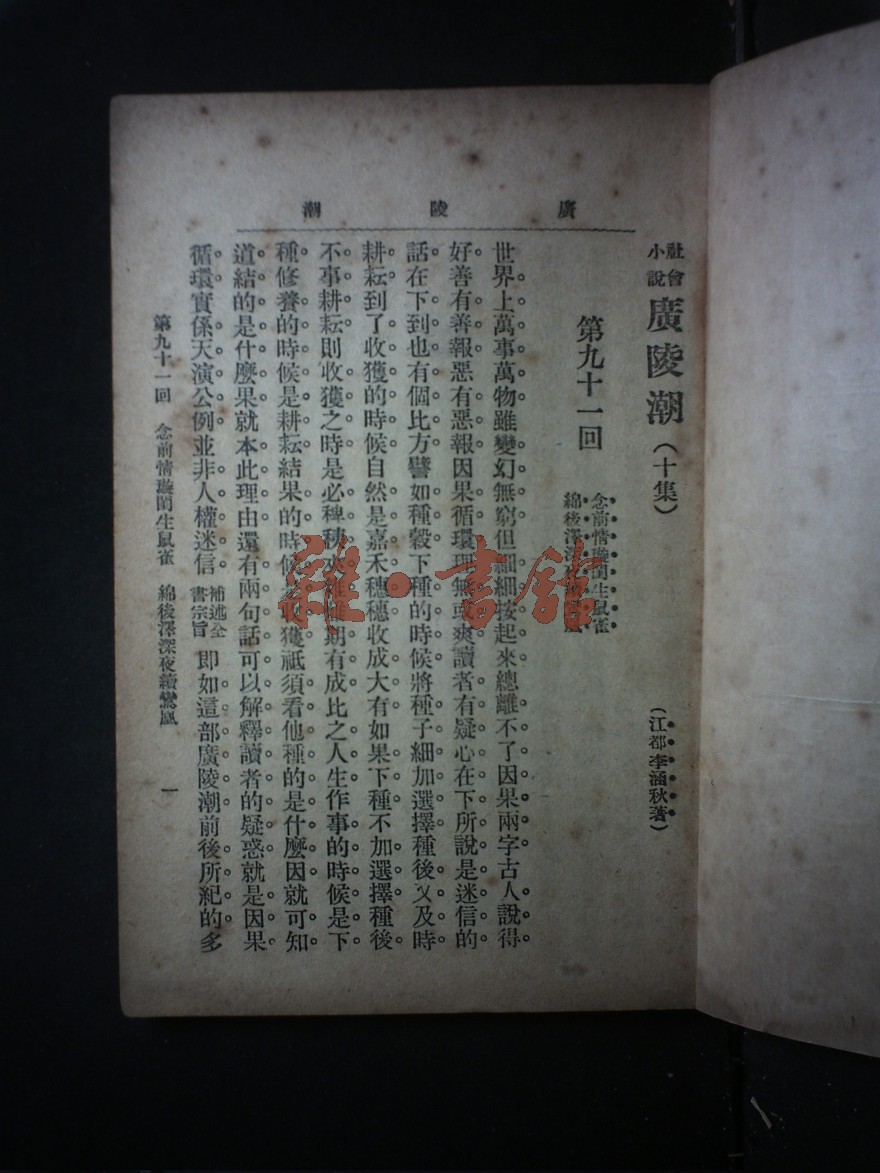 廣陵潮
社會小說 廣陵潮（十集） （江都李涵秋著）
第九十一回
念前情璇閨生鼠雀
綿後澤深夜續鸞鳳
世界上萬事萬物雖變幻無窮但細細按起來總離不了因果兩字古人說得
好善有善報惡有惡報因果循環理無或爽讀者有疑心在下所說是迷信的
話在下到也有個比方譬如種穀下種的時候將種子細加選擇種後又及時
耕耘到了收獲的時候自然是嘉禾穗穗收成大有如果下種不加選擇種後
不事耕耘則收獲之時是必稗秧夾雜難期有成比之人生作事的時候是下
種修養的時候是耕耘結果的時候是收獲祇須看他種的是什麼因就可知
道結的是什麼果就本此理由還有兩句話可以解釋讀者的疑惑就是因果
循環實係天演公例並非人權迷信 補述全書宗旨 即如這部廣陵潮前後所紀的多
第九十一回 念前情璇閨生鼠雀 綿後澤深夜續鸞鳳 一
雜·書館